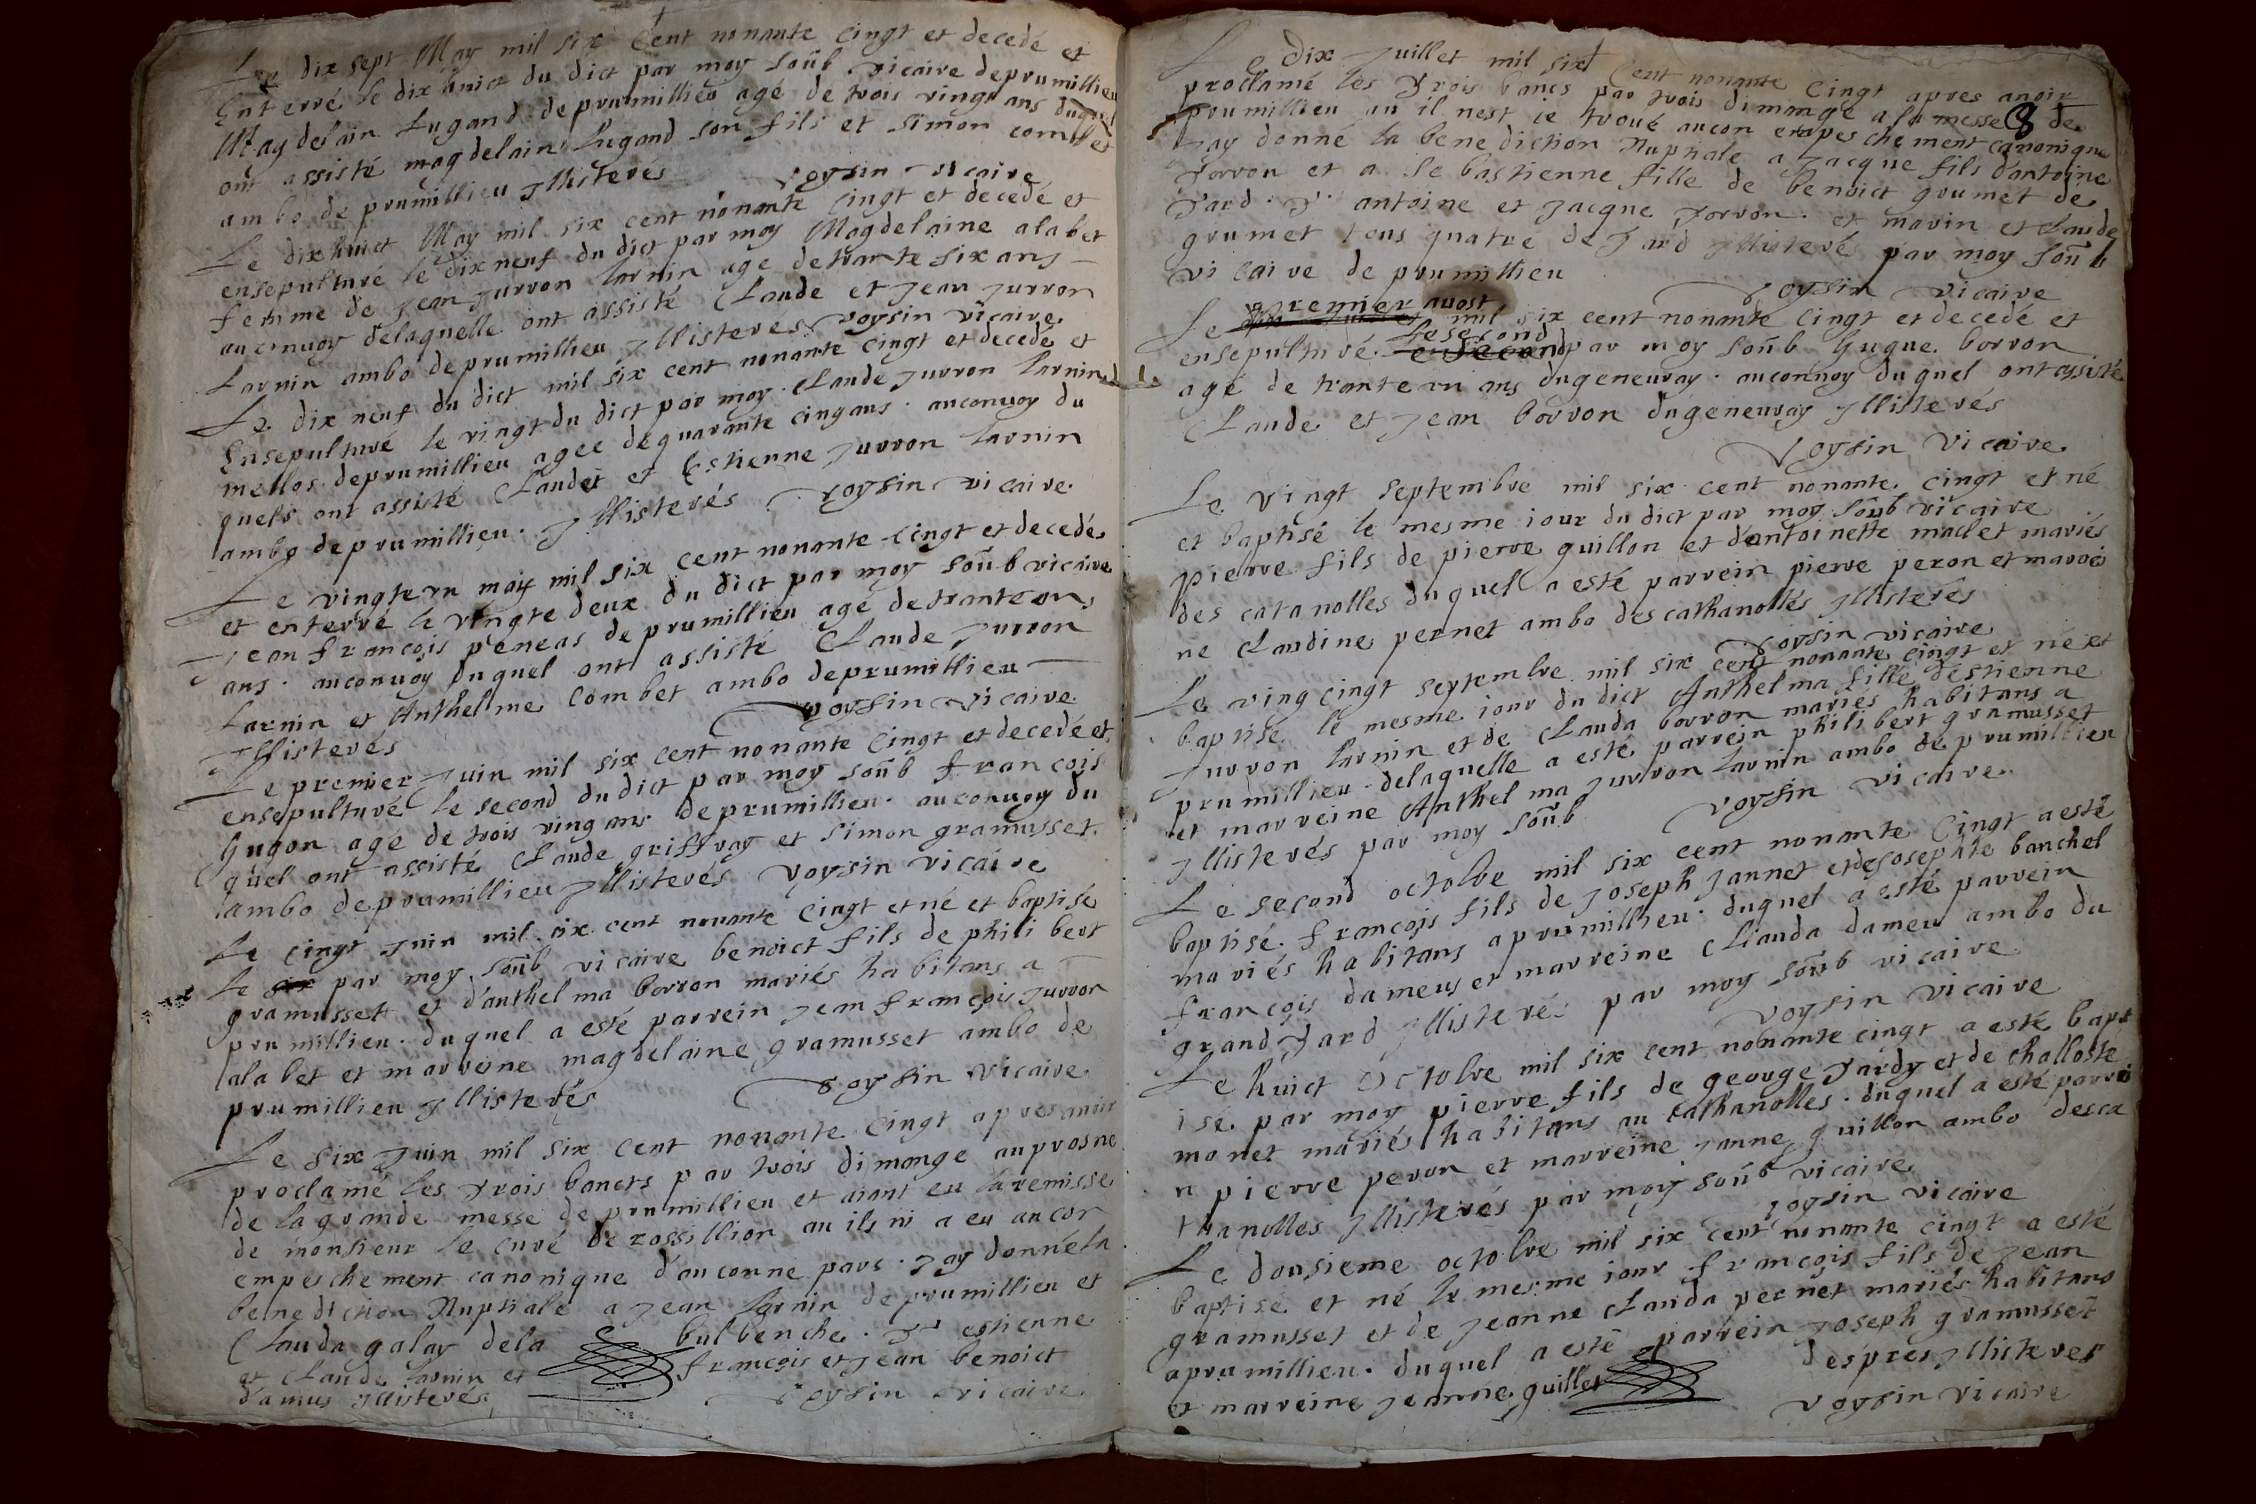 Le dix sept May mil six cent nonante cingt et decedé et
Enterré le dix huict du dict par moy soub vicaire deprumillieu
Magdelain Lugand deprumillieu agé de trois vingt ans duquel
ont assisté magdelain Lugand son fils et simon combet
ambo de prumillieu Jllisterés voysin vicaire
Le dix huict May mil six cent nonante cingt et decedé et
ensepulturé le dix neuf du dict par moy Magdelaine alabet
femme de Jean Jurron Larnin agé detrante six ans
auconuoy delaquelle ont assisté Claude et Jean Jurron
Larnin ambo deprumillieu Jllisteres voysin vicaire
Le dix neuf du dict mil six cent nonante cingt et decedé et
Ensepulturé le vingt du dict par moy Claude Jurron Larnin
mellos deprumillieu agee dequarante cingans . auconuoy du
quels ont assisté Claudet et Estienne Jurron Larnin
ambo deprumillieu . Jllisterés voysin vicaire
Le vingte vn may mil six cent nonante cingt et decedé
et enterré le vingte deux du dict par moy soub vicaire
Jean francois peneas de prumillieu agé detrante
ans . auconuoy duquel ont assisté Claude Jurron
Larnin et Anthelme Combet ambo deprumillieu
Jllisterés voysin vicaire
Le premier Juin mil six cent nonante cingt et decedé et
ensepulturé le second du dict par moy soub francois
Gugon agé de trois ving ans deprumillieu . auconuoy du
quel ont assisté Claude griffray et simon gramusset
ambo deprumillieu Jllisterés voysin vicaire
Le cingt Juin mil six cent nonante cingt et né et baptisé
le six par moy soub vicaire benoict fils de phili bert
gramusset et d'anthelma borron mariés habitans a
prumillieu . duquel a esté parrein Jean françois Jurron
alabet et marreine magdelaine gramusset ambo de
prumillieu Jllisterés voysin vicaire
Le six Juin mil six cent nonante cingt apres auoir
proclamé les trois bancts par trois dimange auprosne
de la grande messe de prumillieu et aiant eu la remisse
de monsieur le curé de rossillion au ils ni a eu aucon
empeschement canonique d'auconne pars . Jay donné la
benediction Nuptiale a Jean Larnin deprumillieu et
Clauda galay dela bulbenche . Estienne
et Claude Larnin et francois et Jean benoict
damus Jllisterés voysin vicaire
Le Dix Juillet mil six Cent nonante Cingt apres auoir
proclamé les trois bancs par trois dimange a la messe de
prumillieu au il nest ie troué aucon enpeschement canonique
Jay donné la benediction Nuptiale a Jacque fils d'antoine
Jorron et a Sebastienne fille de benoict goumet de
Jard . antoine et Jacque Jorron . et marin et Claude
grumet tous quatre de Jard Jllisterés par moy soub
vicaire de prumillieu voysin vicaire
Le premier auost mil six cent nonante cingt et decedé et
ensepulturé le second par moy soub Gugue borron
agé de trante vn ans dugeneuray . auconuoy duquel ont assisté
Claude et Jean borron dugeneuray Jllisterés
voysin vicaire
Le vingt septembre mil six cent nonante cingt et né
et baptisé le mesme iour du dict par moy soub vicaire
pierre fils de pierre guillon et d'antoinette mallet mariés
des catanolles duquel a esté parrein pierre peron et marrei
ne Claudine pernet ambo des cathanolles Jllisterés
voysin vicaire
Le ving cingt septembre mil six cent nonante cingt et né et
baptisé le mesme iour du dict Anthelma fille destienne
Jurron Larnin et de Clauda borron mariés habitans a
prumillieu . delaquelle a esté parrein philibert gramusset
et marreine Anthelma Jurron Larnin ambo de prumillieu
Jllisterés par moy soub voysin vicaire
Le second octobre mil six cent nonante cingt a esté
baptisé francois fils de Joseph Jannet et de Josephte banchel
mariés habitans a prumillieu . duquel a esté parrein
françois dameus et marreine Clauda dameu ambo du
grand Jard Jllisterés par moy soub vicaire
voysin vicaire
Le huict Octobre mil six cent nonante cingt a esté bapt
isé par moy pierre fils de george Tardy et de challoste
monet mariés habitans au cathanolles . duquel a esté parrei
n pierre peron et marreine Janne guillon ambo desca
thanolles Jllisterés par moy soub vicaire
voysin vicaire
Le dousieme octobre mil six cent nonante cingt a esté
baptisé et né le mesme iour francois fils de Jean
gramusset et de Jeanne Clauda pernet mariés habitans
aprumillieu . duquel a esté parrein Joseph gramusset
et marreine Jeanne guillet despres Jllisterés
voysin vicaire